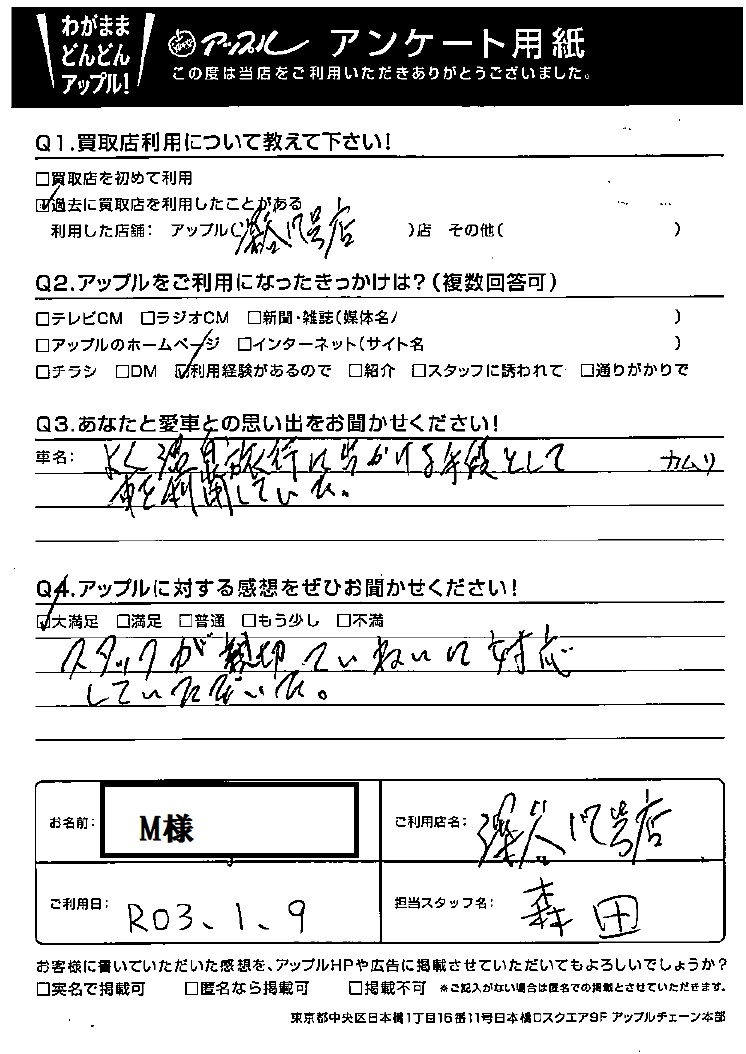 わがまま
どんどん
アップル!
アップル アンケート用紙
この度は当店をご利用いただきありがとうございました。
Q1.買取店利用について教えて下さい!
□買取店を初めて利用
☑過去に買取店を利用したことがある
利用した店舗: アップル( 17号店 )店 その他( )
Q2.アップルをご利用になったきっかけは?(複数回答可)
□テレビCM □ラジオCM □新聞・雑誌(媒体名/ )
□アップルのホームページ □インターネット(サイト名 )
□チラシ □DM ☑利用経験があるので □紹介 □スタッフに誘われて □通りがかりで
Q3.あなたと愛車との思い出をお聞かせください!
車名: よく温泉旅行に出かける手段として カムリ
車を利用していた。
Q4.アップルに対する感想をぜひお聞かせください!
☑大満足 □満足 □普通 □もう少し □不満
スタッフが親切ていねいに対応
していただいた。
お名前: M様
ご利用店名: 17号店
ご利用日: R03.1.9
担当スタッフ名: 森田
お客様に書いていただいた感想を、アップルHPや広告に掲載させていただいてもよろしいでしょうか?
□実名で掲載可 □匿名なら掲載可 □掲載不可 ※ご記入がない場合は匿名での掲載とさせていただきます。
東京都中央区日本橋1丁目16番11号日本橋ロスクエア9F アップルチェーン本部